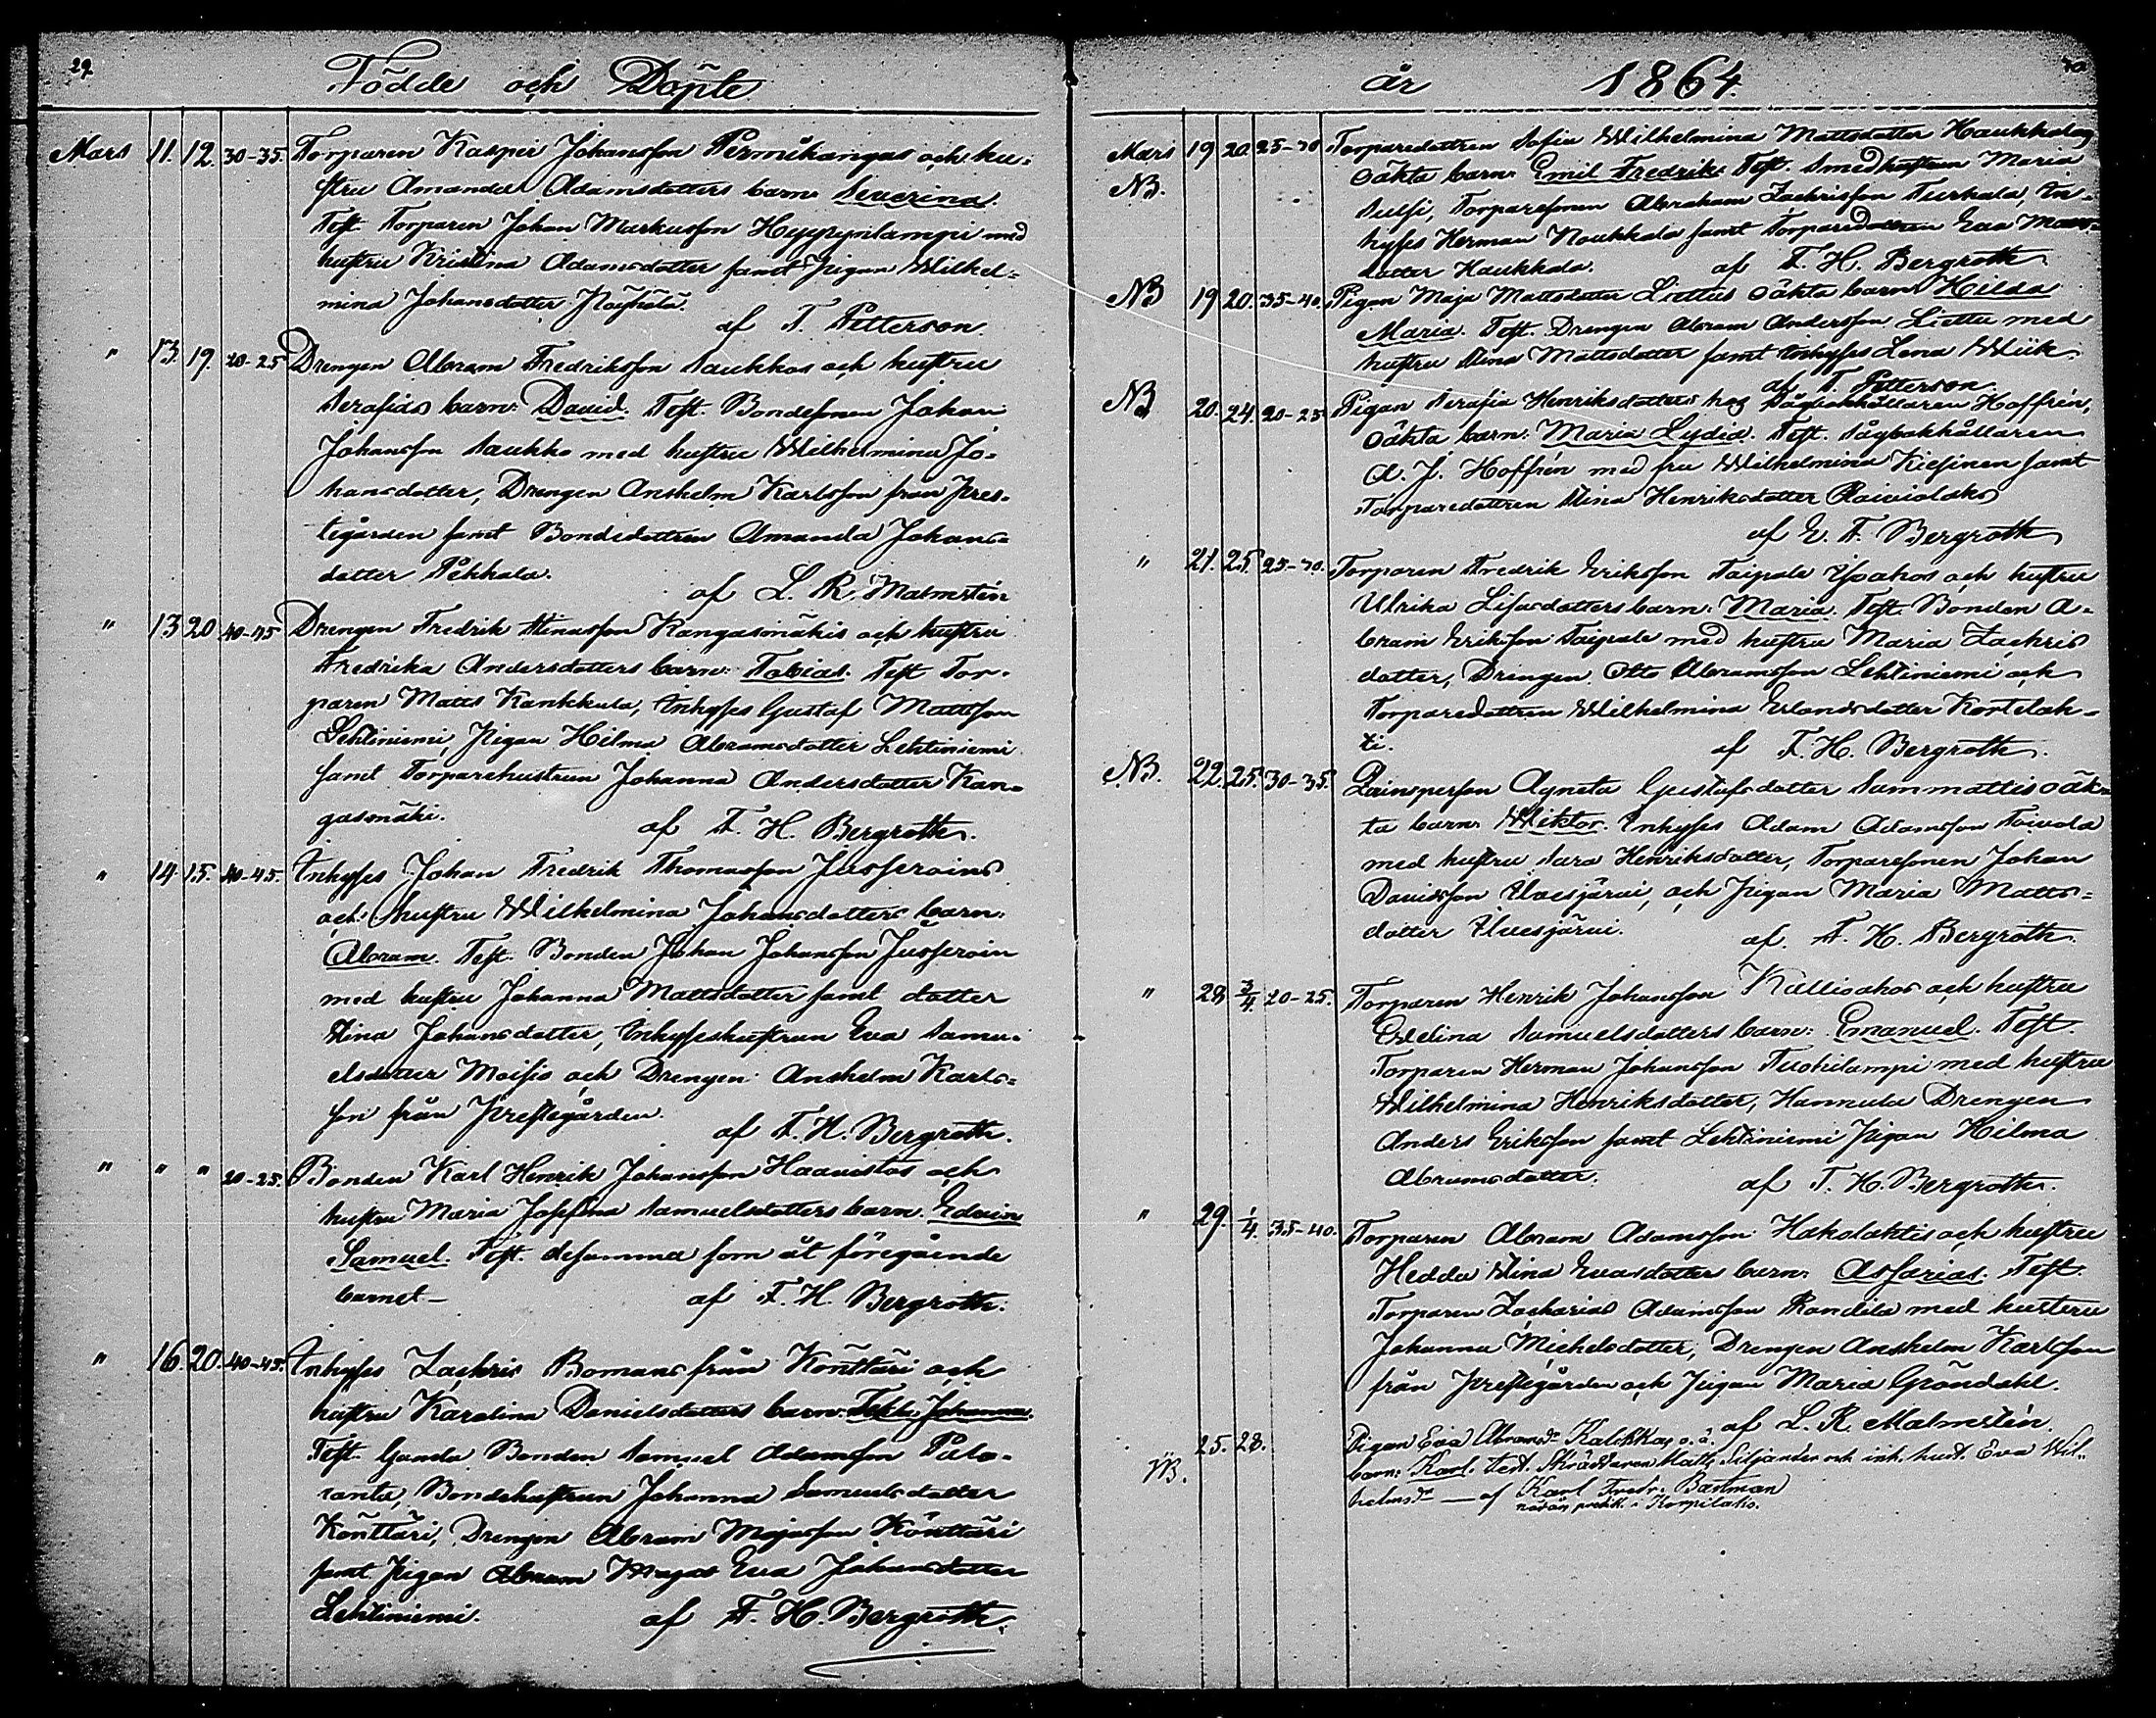 29.
Födde och Döpte
Mars 11. 12. 30-35. Torparen Kasper Johansson Permikangas och hu-
stru Amanda Adamsdotters barn: Severina.
Test. Torparen Johan Markusson Hyyrynlampi med
hustru Kristina Adamsdotter samt Pigan Wilhel-
mina Johansdotter
af T. Petterson.
" 13. 19. 20-25 Drengen Abram Fredriksson Saukkos och hustru
Serafias barn: David. Test. Bondesonen Johan
Johansson Saukko med hustru Wilhelmina Jo-
hansdotter, Drengen Anshelm Karlsson från Pres-
tegården samt Bondedottren Amanda Johans-
dotter Pekkala.
af L. R. Malmstén
" 13 20 40-45 Drengen Fredrik Stinasson Kangasmäkis och hustru
Fredrika Andersdotters barn: Tobias. Test Tor-
paren Matts Kankkula, Inhyses Gustaf Mattsson
Lehtiniemi, Pigan Hilma Abramsdotter Lehtiniemi
samt Torparehustrun Johanna Andersdotter Kan-
gasmäki.
af F. H. Bergroth.
" 14. 15. 40-45. Inhyses Johan Fredrik Thomasson Jusseroins
och hustru Wilhelmina Johansdotters barn:
Abram. Test. Bonden Johan Johansson Jusseroin
med hustru Johanna Mattsdotter samt dotter
Stina Johansdotter, Inhyseshustrun Eva Samu-
elsdotter Moisio och Drengen Anshelm Karls-
son från Prestegården.
af F. H. Bergroth.
" " " 20-25. Bonden Karl Henrik Johansson Haavistos och
hustru Maria Josefina Samuelsdotters barn. Edvin
Samuel. Test. desamma som åt föregående
barnet —
af F. H. Bergroth.
" 16. 20. 40-45. Inhyses Zachris Bomans från Könttäri och
hustru Karolina Danielsdotters barn: Johanna.
Test. Bonden Samuel Adamsson Palo-
ranta, Bondehustrun Johanna Samuelsdotter
Könttäri, Drengen Abram Majasson Könttäri
samt Pigan Abram Eva Johansdotter
Lehtiniemi.
af F. H. Bergroth.
år 1864.
Mars 19 20. 25-30 Torparedottren Sofia Wilhelmina Mattsdotter Haukkalas
NB. oäkta barn: Emil Fredrik. Test. Smedhustrun Maria
Torparesonen Abraham Zachrisson Turkala, In-
hyses Herman Noukkala samt Torparedottren Eva
dotter Haukkala. af F. H. Bergroth
NB 19 20. 35-40. Pigan Maja Mattsdotter Liettus oäkta barn Hilda
Maria. Test. Drengen Abram Andersson Liettu med
hustru Stina Mattsdotter samt Inhyses Lena Wiik
af T. Petterson.
NB 20. 24. 20-25 Pigan Serafia Henriksdotters hos Sågbokhållaren Hoffrén,
oäkta barn: Maria Lydia. Test. Sågbokhållaren
A. J. Hoffrén med fru Wilhelmina Kiesinen samt
Torparedottren Stina Henriksdotter
af E. F. Bergroth
" 21. 25. 25-30. Torparen Fredrik Eriksson Taipale och hustru
Ulrika Lisasdotters barn: Maria. Test. Bonden A-
bram Eriksson Taipale med hustru Maria Zachris
dotter, Drengen Otto Abramsson Lehtiniemi och
Torparedottren Wilhelmina Erlandsdotter Kortelah-
ti. af F. H. Bergroth.
NB. 22. 25. 30-35. Qvinsperson Agneta Gustafsdotter Sammattis oäk-
ta barn: Wiktor. Inhyses Adam Adamsson Toivola
med hustru Sara Henriksdotter, Torparesonen Johan
Davidsson Uvesjärvi, och Pigan Maria Matts-
dotter Uvesjärvi.
af F. H. Bergroth.
" 28 3/4. 20-25. Torparen Henrik Johansson Kallioahos och hustru
Evelina Samuelsdotters barn: Emanuel. Test.
Torparen Herman Johansson Tuohilampi med hustru
Wilhelmina Henriksdotter, Hannula Drengen
Anders Eriksson samt Lehtiniemi Pigan Hilma
Abramsdotter. af F. H. Bergroth.
" 29. 1/4. 35-40. Torparen Abram Adamsson Hakolahtis och hustru
Hedda Stina Evasdotters barn: Assarias. Test.
Torparen Zacharias Adamsson Randila med hustru
Johanna Michelsdotter, Drengen Anshelm Karlsson
från Prestegården och Pigan Maria Gröndahl.
af L. R. Malmstén.
NB. 25. 28. Pigan Eva Abramsdr Kalikkas o. ä.
barn: Karl. Test. Skräddaren Matts Siljander och inh. hust. Eva Wil-
helmsdr — af Karl Fredr. Bastman
nådårs predik. i Korpilaks.